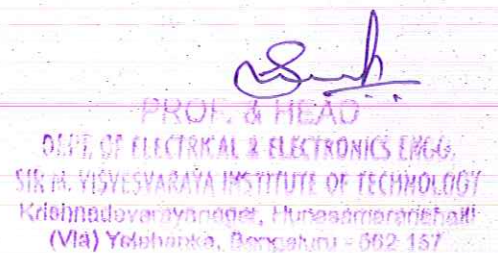 PROF. & HEAD
DEPT. OF ELECTRICAL & ELECTRONICS ENGG.
SIR M. VISVESVARAYA INSTITUTE OF TECHNOLOGY
Krishnadevarayanagar, Hunasamaranahalli
(Via) Yelahanka, Bengaluru - 562 157